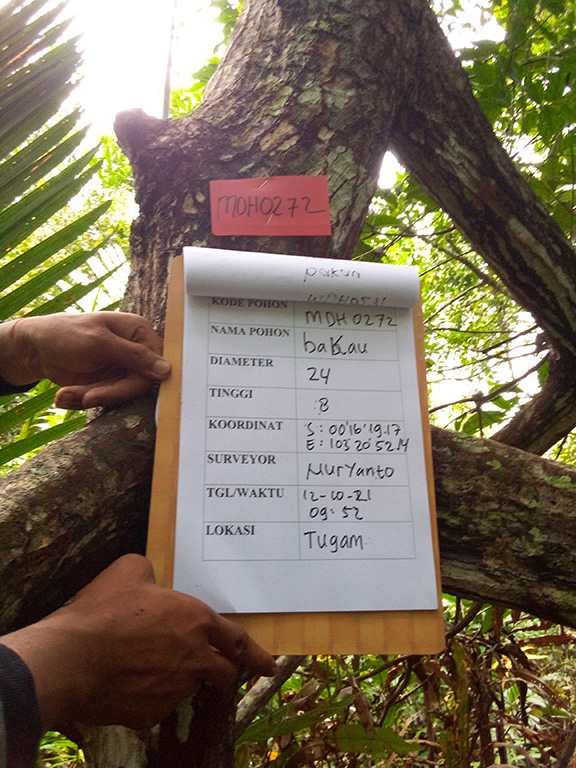 MDH0272
KODE POHON MDH0272
NAMA POHON baKau
DIAMETER 24
TINGGI 8
KOORDINAT S : 00'16'19.17
E : 103'20'52.14
SURVEYOR Muryanto
TGL/WAKTU 12-10-21
09:52
LOKASI Tugam